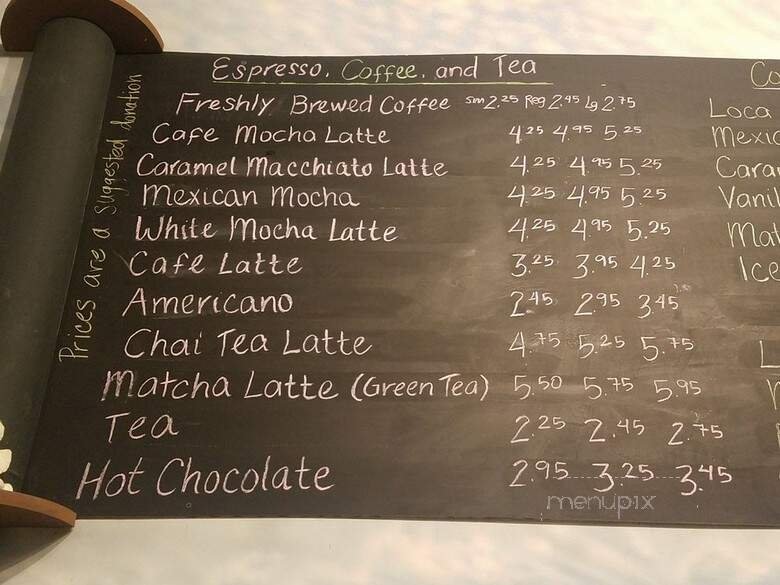 Espresso, Coffee, and Tea
Freshly Brewed Coffee sm 2.25 Reg 2.45 Lg 2.75
Cafe Mocha Latte 4.25 4.95 5.25
Caramel Macchiato Latte 4.25 4.95 5.25
Mexican Mocha 4.25 4.95 5.25
White Mocha Latte 4.25 4.95 5.25
Cafe Latte 3.25 3.95 4.25
Americano 2.45 2.95 3.45
Chai Tea Latte 4.75 5.25 5.75
Matcha Latte (Green Tea) 5.50 5.75 5.95
Tea 2.25 2.45 2.75
Hot Chocolate 2.95 3.25 3.45
Prices are a suggested donation
Co
Loca
Mexic
Cara
Vanil
Mat
Ice
menupix